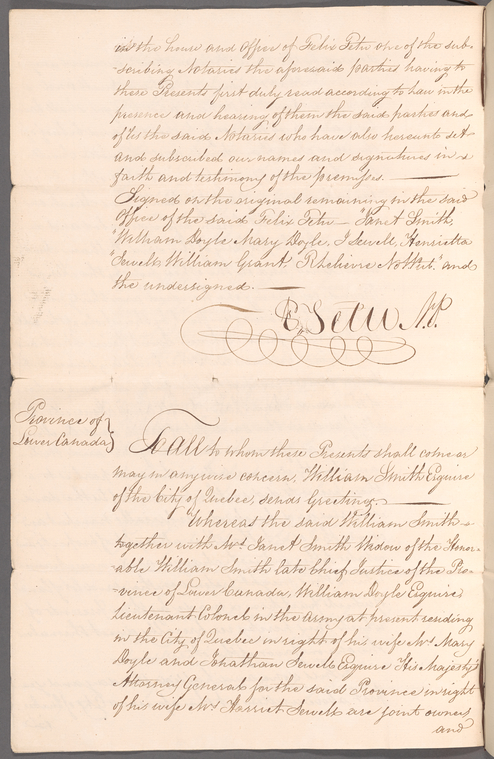 in the house and Office of Felix Tetu one of the sub-
-scribing Notaries the aforesaid parties having to
these Presents first duly read according to law in the
presence and hearing of them the said parties and
of Us the said Notaries who have also hereunto set
and subscribed our names and signatures in
faith and testimony of the premises.
Signed on the original remaining in the said
Office of the said Felix Tetu — "Janet Smith,
"William Doyle Mary Doyle, J Sewell, Henrietta
"Sewell, William Grant, R Lelievre Not Pub." and
the undersigned. —
F. Tetu N.P.
Province of }
Lower Canada }
To all to whom these Presents shall come or
may in anywise concern, William Smith Esquire
of the City of Quebec, sends Greeting.
Whereas the said William Smith
together with Mrs Janet Smith Widow of the Honor-
able William Smith late Chief Justice of the Pro-
-vince of Lower Canada, William Doyle Esquire
Lieutenant Colonel in the Army at present residing
in the City of Quebec in right of his wife Mrs Mary
Doyle and Jonathan Sewell Esquire His Majesty's
Attorney General for the said Province in right
of his wife Mrs Harriet Sewell are joint owners
and